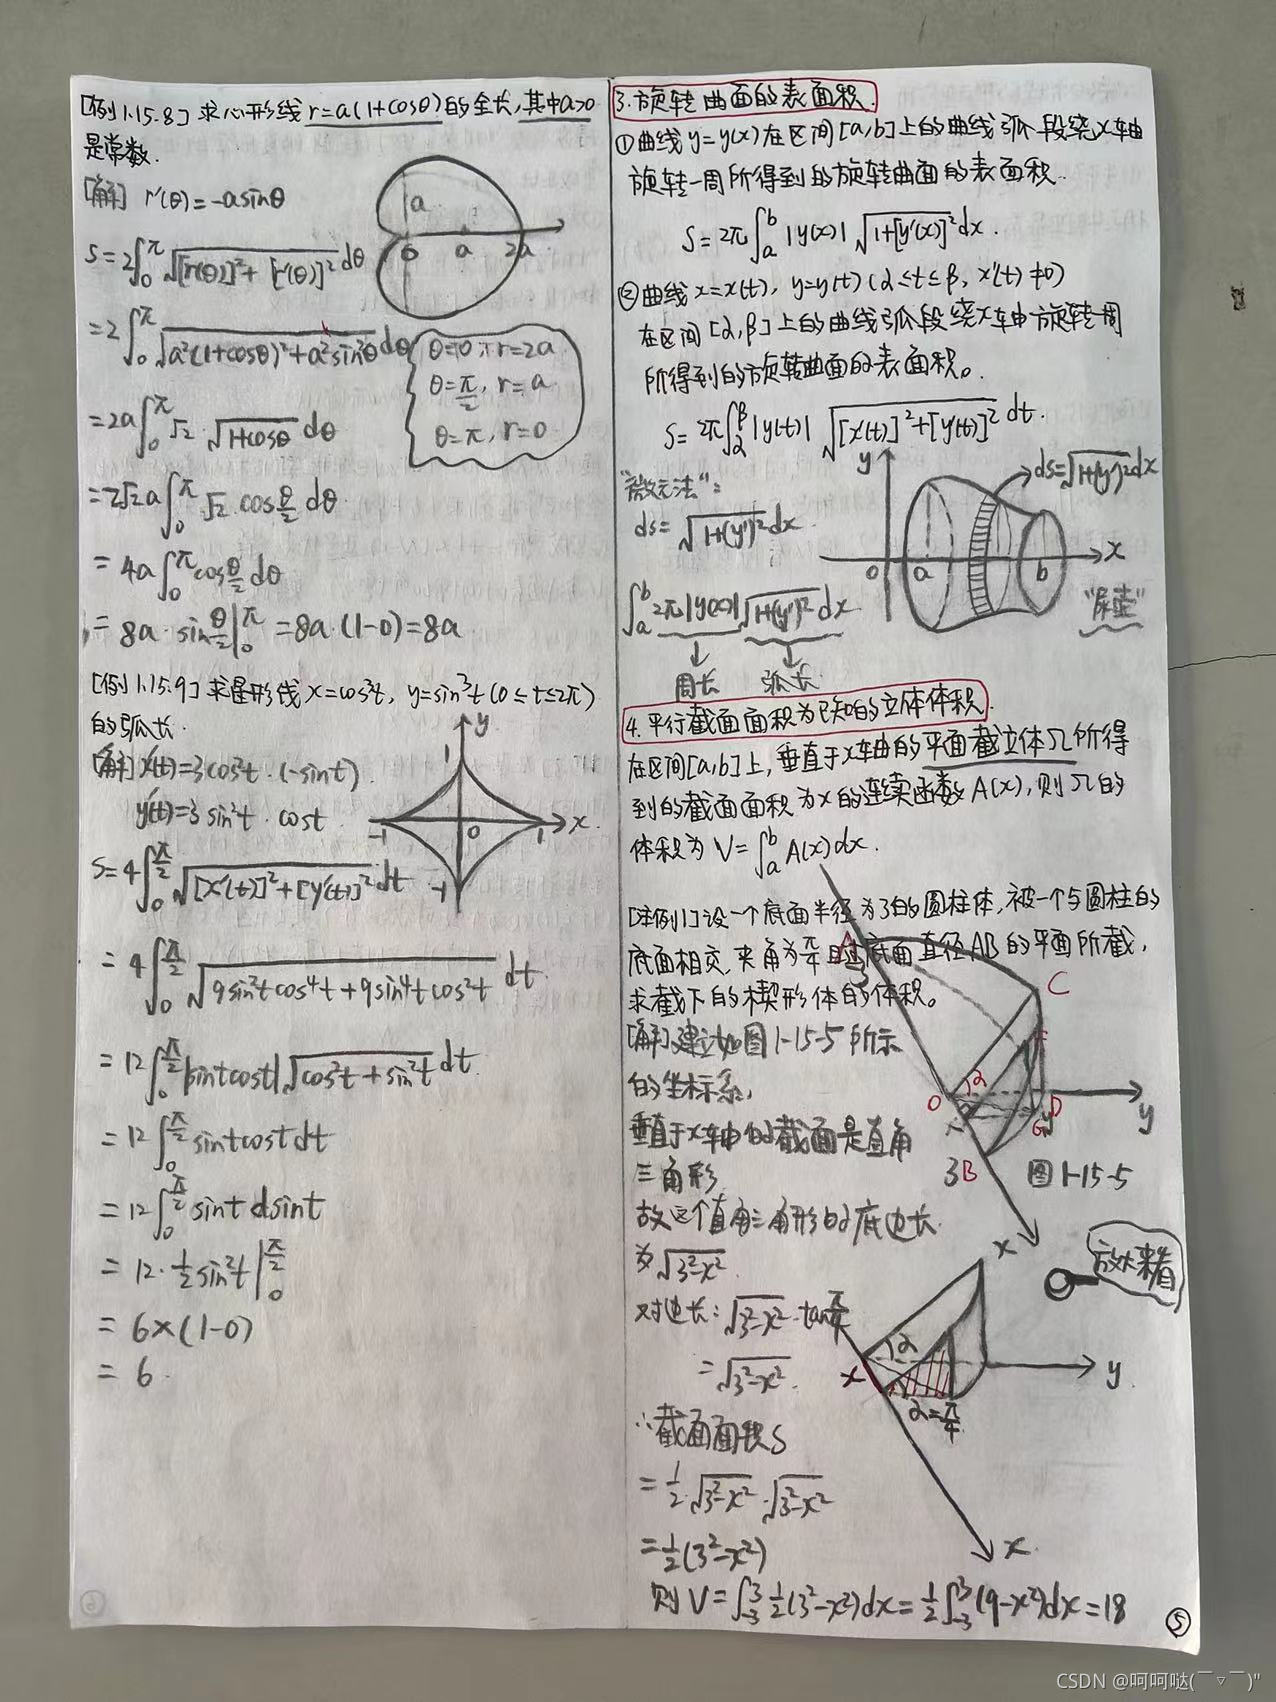 [例1.15.8] 求心形线 r=a(1+cosθ)的全长,其中a>0
是常数.
[解] r'(θ)=-asinθ
S=2∫₀^π √([r(θ)]²+[r'(θ)]²) dθ
=2∫₀^π √(a²(1+cosθ)²+a²sin²θ) dθ
=2a∫₀^π √2·√(1+cosθ) dθ
=2√2a∫₀^π √2·cos θ/2 dθ
=4a∫₀^π cos θ/2 dθ
=8a·sin θ/2|₀^π=8a·(1-0)=8a
a
0 a 2a
θ=0, r=2a
θ=π/2, r=a
θ=π, r=0
[例1.15.9] 求星形线 x=cos³t, y=sin³t(0≤t≤2π)
的弧长.
[解] x'(t)=3cos²t·(-sint)
y'(t)=3sin²t·cost
S=4∫₀^(π/2) √([x'(t)]²+[y'(t)]²) dt
=4∫₀^(π/2) √(9sin²tcos⁴t+9sin⁴tcos²t) dt
=12∫₀^(π/2)|sintcost|√(cos²t+sin²t) dt
=12∫₀^(π/2) sintcostdt
=12∫₀^(π/2) sint dsint
=12·1/2sin²t|₀^(π/2)
=6×(1-0)
=6.
y
1
-1 0 1 x
-1
3.旋转曲面的表面积.
①曲线y=y(x)在区间[a,b]上的曲线弧段绕x轴
旋转一周所得到的旋转曲面的表面积.
S=2π∫ₐᵇ|y(x)|√(1+[y'(x)]²)dx.
②曲线x=x(t), y=y(t)(α≤t≤β, x'(t)≠0)
在区间[α,β]上的曲线弧段绕x轴旋转一周
所得到的旋转曲面的表面积。
S=2π∫_α^β|y(t)|√([x'(t)]²+[y'(t)]²) dt.
"微元法":
ds=√(1+(y')²)dx.
∫ₐᵇ2π|y(x)|√(1+(y')²)dx.
周长 弧长
y
ds=√(1+(y')²)dx
0 a b x
4.平行截面面积为已知的立体体积.
在区间[a,b]上,垂直于x轴的平面截立体Ω所得
到的截面面积为x的连续函数A(x),则Ω的
体积为 V=∫ₐᵇA(x)dx.
[注例1]设一个底面半径为3的圆柱体,被一个与圆柱的
底面相交,夹角为π/4且过底面直径AB的平面所截,
求截下的楔形体的体积。
[解]建立如图1-15-5所示
的坐标系,
垂直于x轴的截面是直角
三角形
故这个直角三角形的底边长
为√(3²-x²)
对边长:√(3²-x²)·tanπ/4
=√(3²-x²).
∴截面面积S
=1/2·√(3²-x²)·√(3²-x²)
=1/2(3²-x²)
则V=∫₋₃³1/2(3²-x²)dx=1/2∫₋₃³(9-x²)dx=18
A
C
α
O D y
3B
图1-15-5
x
放大来看
α
x y
α=π/4
x
⑤
CSDN @呵呵哒(￣▽￣)"